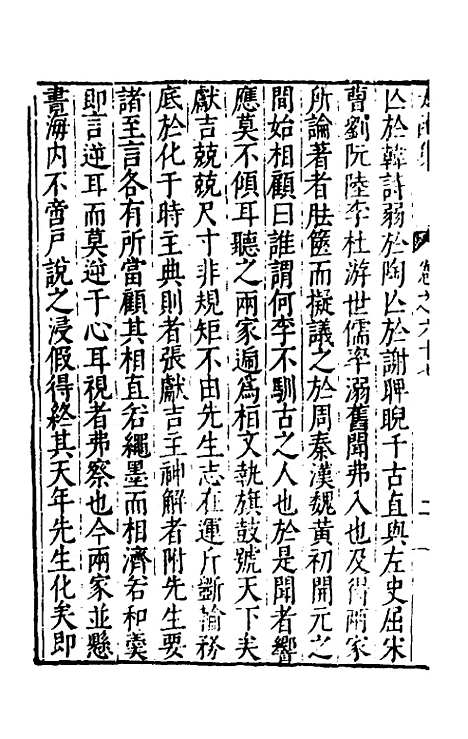 亾於韓詩弱於陶亾於謝睥睨千古直與左史屈宋
曹劉阮陸李杜游世儒率溺舊聞弗入也及得兩家
所論著者胠篋而擬議之於周秦漢魏黃初開元之
間始相顧曰誰謂何李不馴古之人也於是聞者響
應莫不傾耳聽之兩家遞爲桓文執旗鼓號天下矣
獻吉兢兢尺寸非規矩不由先生志在運斤斲輪務
底於化于時主典則者張獻吉主神解者附先生要
諸至言各有所當顧其相直若繩墨而相濟若和羹
即言逆耳而莫逆于心耳視者弗察也今兩家並懸
書海內不啻戶說之浸假得終其天年先生化矣即